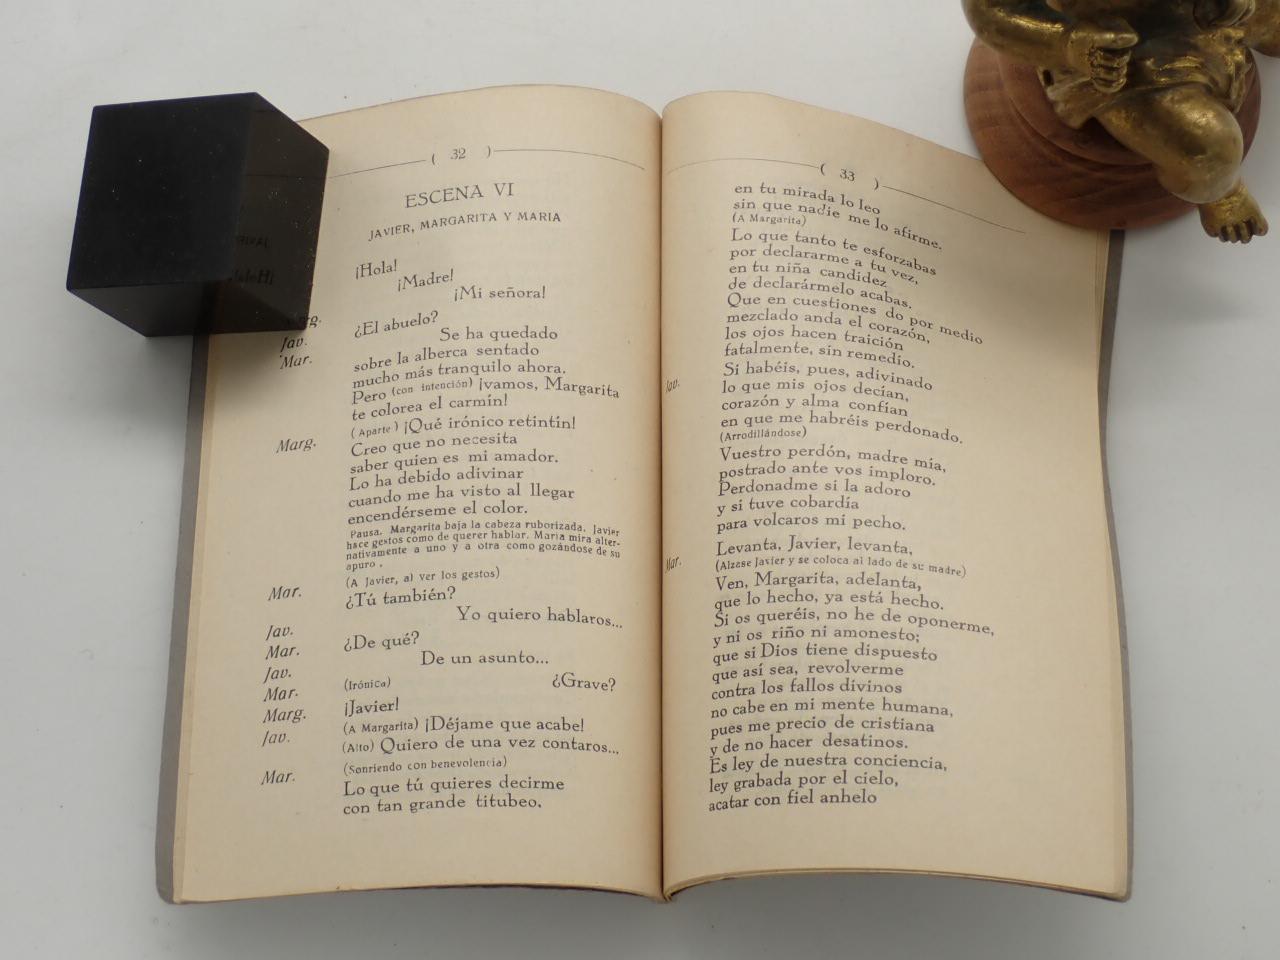 ( 32 )
ESCENA VI
JAVIER, MARGARITA Y MARIA
¡Hola!
¡Madre!
¡Mi señora!
¿El abuelo?
Jav. Se ha quedado
Mar. sobre la alberca sentado
mucho más tranquilo ahora.
Pero (con intención) ¡vamos, Margarita
te colorea el carmín!
Marg. (Aparte) ¡Qué irónico retintín!
Creo que no necesita
saber quien es mi amador.
Lo ha debido adivinar
cuando me ha visto al llegar
encendérseme el color.
Pausa. Margarita baja la cabeza ruborizada. Javier
hace gestos como de querer hablar. Maria mira alter-
nativamente a uno y a otra como gozándose de su
apuro.
Mar. (A Javier, al ver los gestos)
¿Tú también?
Jav. Yo quiero hablaros...
Mar. ¿De qué?
Jav. De un asunto...
Mar. (Irónica) ¿Grave?
Marg. ¡Javier!
Jav. (A Margarita) ¡Déjame que acabe!
(Alto) Quiero de una vez contaros...
Mar. (Sonriendo con benevolencia)
Lo que tú quieres decirme
con tan grande titubeo,
( 33 )
en tu mirada lo leo
sin que nadie me lo afirme.
(A Margarita)
Lo que tanto te esforzabas
por declararme a tu vez,
en tu niña candidez
de declarármelo acabas.
Que en cuestiones do por medio
mezclado anda el corazón,
los ojos hacen traición
fatalmente, sin remedio.
Jav. Si habéis, pues, adivinado
lo que mis ojos decían,
corazón y alma confían
en que me habréis perdonado.
(Arrodillándose)
Vuestro perdón, madre mía,
postrado ante vos imploro.
Perdonadme si la adoro
y si tuve cobardía
para volcaros mi pecho.
Mar. Levanta, Javier, levanta,
(Alzase Javier y se coloca al lado de su madre)
Ven, Margarita, adelanta,
que lo hecho, ya está hecho.
Si os queréis, no he de oponerme,
y ni os riño ni amonesto;
que si Dios tiene dispuesto
que así sea, revolverme
contra los fallos divinos
no cabe en mi mente humana,
pues me precio de cristiana
y de no hacer desatinos.
Es ley de nuestra conciencia,
ley grabada por el cielo,
acatar con fiel anhelo